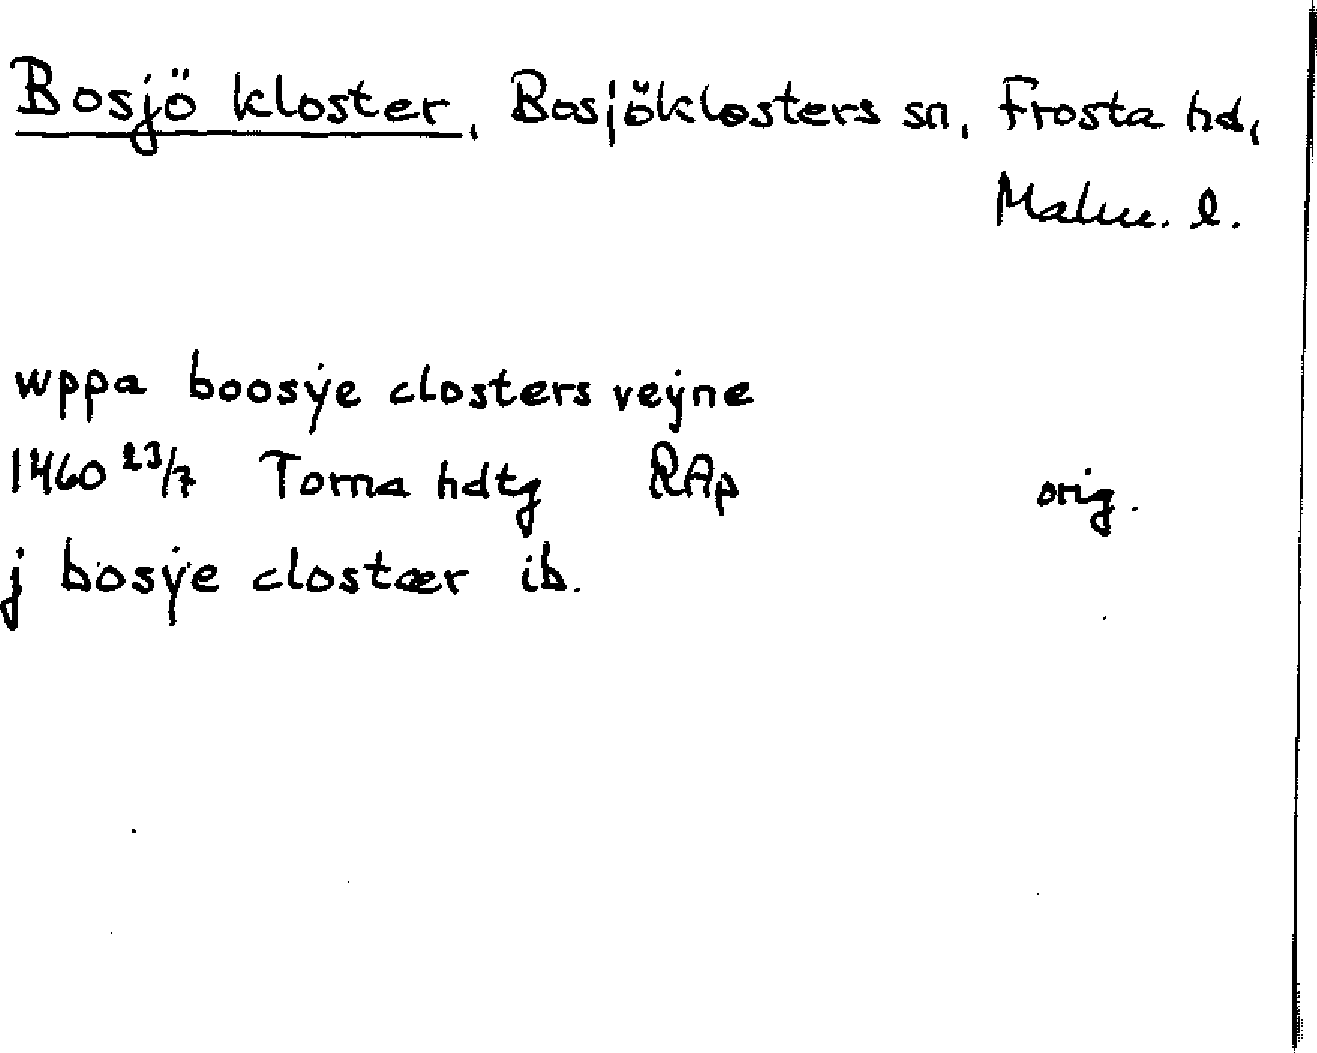 Bosjö kloster, Bosjöklosters sn, Frosta hd,
Malm. l.
wppa boosÿe closters veÿne
1460 23/7 Torna hdtg RAp orig.
j bosÿe clostær ib.